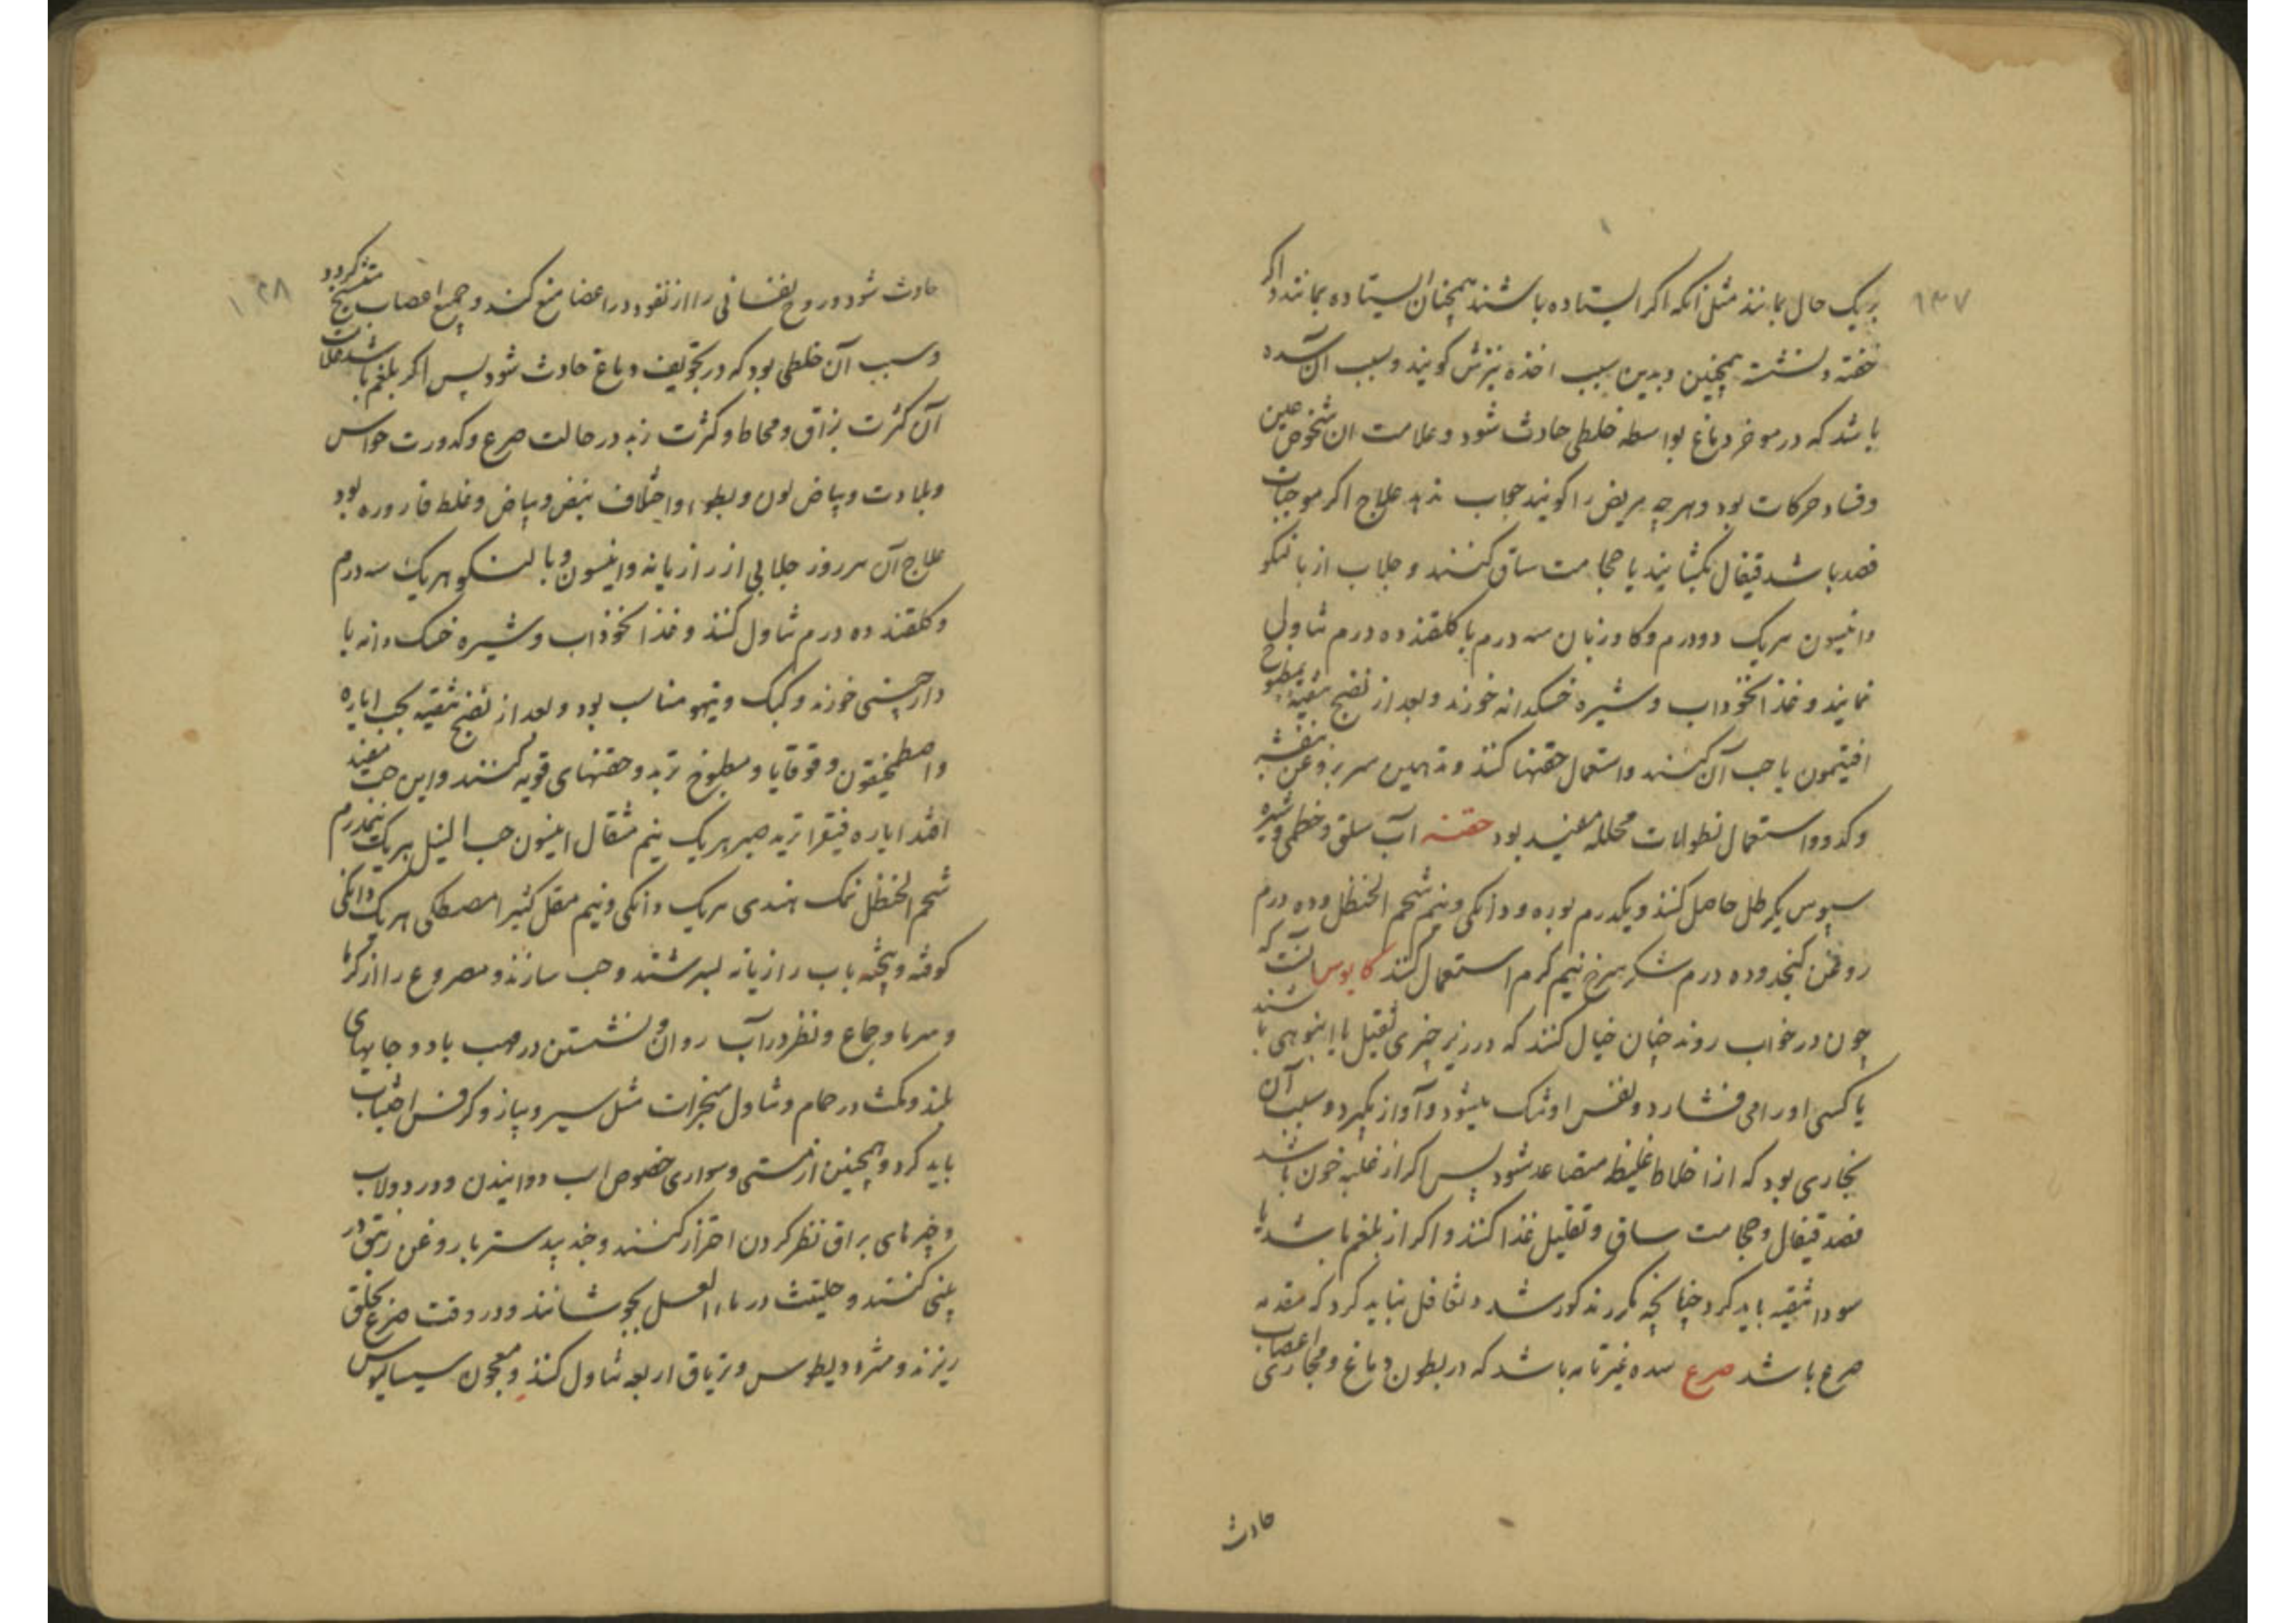 ۱۳۷
بریک حال بمانند مثل آنکه اکر ایستاده باشند همچنان ایستاده بمانند و اکر
خفته و نشسته همچنین و بدین سبب اخذه نیزش کویند و سبب آن سده
باشد که در موخر دماغ بواسطه خلطی حادث شود و علامت ان شخوص عین
و فساد حرکات بود و هر چه مریض را کویند جواب ندهد علاج اکر موجبات
فصد باشد قیفال بکشایند یا حجامت ساق کنند و جلاب از بالنکو
و انیسون هریک دو درم و کاوزبان سه درم با کلقند ده درم تناول
نمایند و غذا نخوداب و شیره خسکدانه خورند و بعد از نضج تنقیه بمطبوخ
افتیمون یا حب آن کنند و استعمال حقنها کنند و تدهین سر بروغن بنفشه
و کدو و استعمال نطولات محلله مفید بود حقنه آب سلق و خطمی و شیره
سبوس یکرطل حاصل کنند و یکدرم بوره و دانکی و نیم شحم الحنظل و ده درم
روغن کنجد و ده درم شکر سرخ نیم کرم استعمال کنند کابوس آنست که
چون در خواب روند چنان خیال کنند که در زیر چیزی ثقیل یا انبوهی باشند
یا کسی او را می فشارد و نفس او تنک میشود و آواز بکیرد و سبب آن
بخاری بود که از اخلاط غلیظ متصاعد شود پس اکر از غلبه خون باشد
فصد قیفال و حجامت ساق و تقلیل غذا کنند و اکر از بلغم باشد یا
سودا تنقیه باید کرد چنانچه مکرر مذکور شد و تغافل نباید کرد که مقدمه
صرع باشد صرع سده غیر تامه باشد که در بطون دماغ و مجاری اعصاب
حادث
۱۳۸
حادث شود و روح نفسانی را از نفوذ در اعضا منع کند و جمیع اعصاب متشنج کردد
و سبب آن خلطی بود که در تجویف دماغ حادث شود پس اکر بلغم باشد علامات
آن کثرت بزاق و مخاط و کثرت زبد در حالت صرع و کدورت حواس
و بلادت و بیاض لون و بطوء و اختلاف نبض و بیاض و غلظ قاروره بود
علاج آن هر روز جلابی از رازیانه و انیسون و بالنکو هریک سه درم
و کلقند ده درم تناول کنند و غذا نخوداب و شیره خسک دانه با
دارچینی خورند و کبک و تیهو مناسب بود و بعد از نضج تنقیه بحب ایاره
و اصطمخیقون و قوقایا و مطبوخ تربد و حقنهای قویه کنند و این حب مفید
افتد ایاره فیقرا تربد صبر هریک نیم مثقال انیسون حب النیل هریک نیمدرم
شحم الحنظل نمک هندی هریک دانکی و نیم مقل کثیرا مصطکی هریک دانکی
کوفته و بیخته باب رازیانه بسرشند و حب سازند و مصروع را از کرما
و سرما و جماع و نظر در آب روان و نشستن در مهب باد و جایهای
بلند و مکث در حمام و تناول مبخرات مثل سیر و پیاز و کرفس اجتناب
باید کرد و همچنین از مستی و سواری خصوص اسب دوانیدن و در دولاب
و چیزهای براق نظر کردن احتراز کنند و جند بیدستر با روغن زنبق در
بینی کنند و حلتیت در ماء العسل بجوشانند و در وقت صرع بحلق
ریزند و مثرودیطوس و تریاق اربعه تناول کنند و معجون سیسالیوس